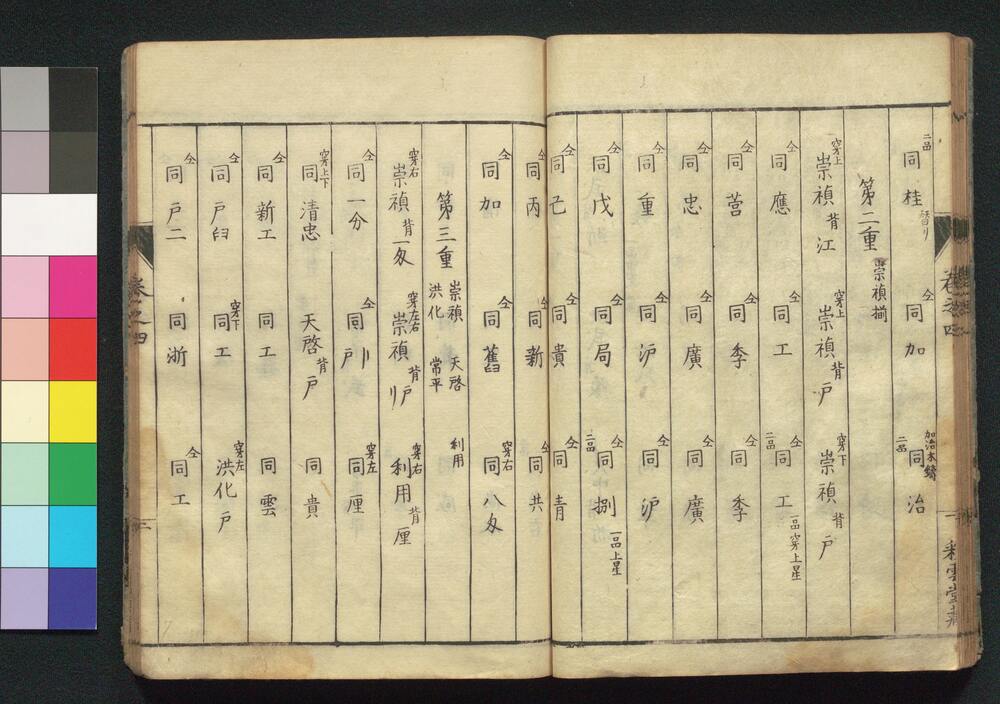 二品 同 桂 仝 同 加 加治木鋳 二品 同 治
第二重 崇禎揃
穿上 崇禎 背 江 穿上 崇禎 背 戸 穿下 崇禎 背 戸
仝 同 應 仝 同 工 仝 二品 同 工 一品 穿上星
仝 同 営 仝 同 季 仝 同 季
仝 同 忠 仝 同 廣 仝 同 廣
仝 同 重 仝 同 沪 仝 同 沪
仝 同 戊 仝 同 局 仝 二品 同 捌 一品上星
仝 同 己 仝 同 貴 仝 同 青
仝 同 丙 仝 同 新 仝 同 共
仝 同 加 仝 同 舊 穿右 同 八分
第三重 崇禎 洪化 天啓 常平 利用
穿右 崇禎 背 一分 穿左右 崇禎 背 戸 利用 穿右 背 厘
仝 同 一分 仝 同 戸 穿左 同 厘
穿上下 同 清忠 天啓 背 戸 同 貴
仝 同 新工 同 工 同 雲
仝 同 戸臼 穿下 同 工 穿左 洪化 戸
仝 同 戸二 同 浙 仝 同 工
卷之四
二
卷之四
彩雲堂蔵